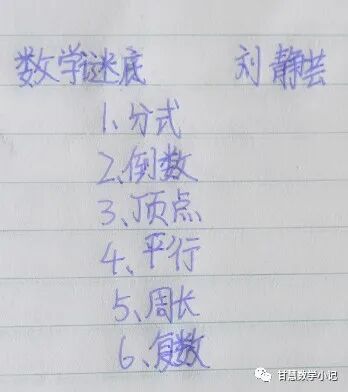 数学谜底 刘静芸
1、分式
2、倒数
3、顶点
4、平行
5、周长
6、复数
甘慧数学小记